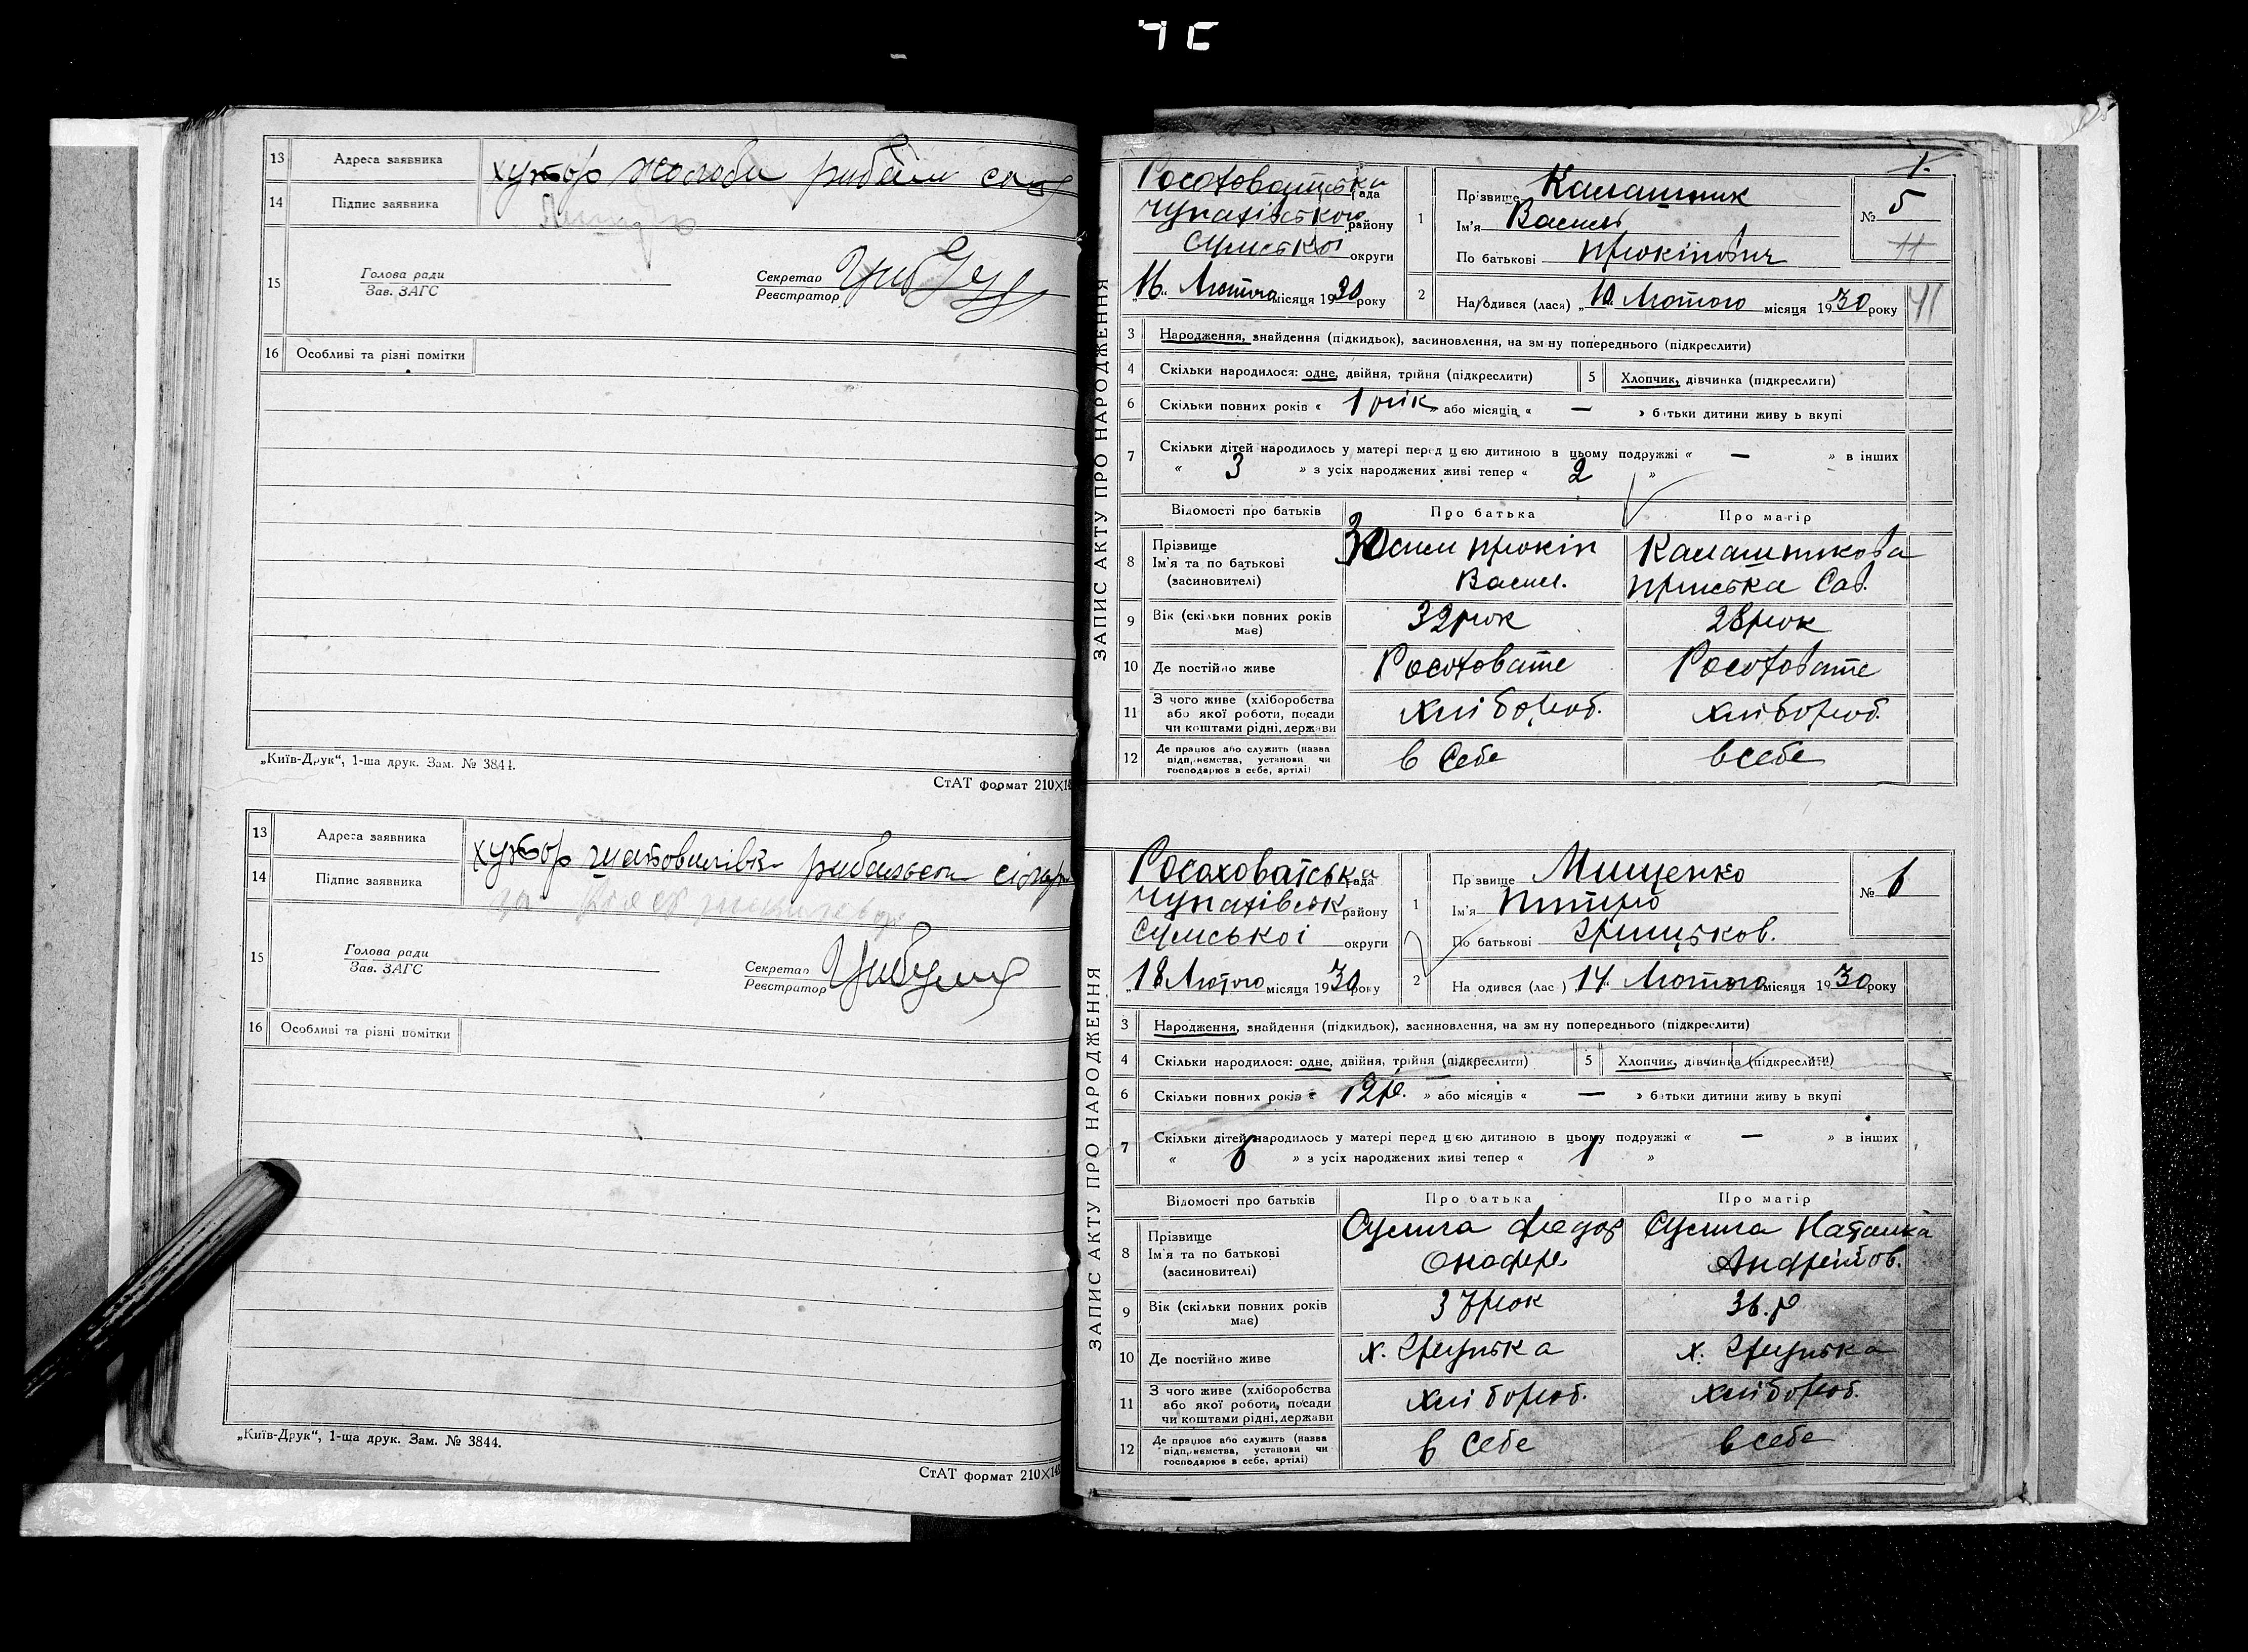 13 Адреса заявника хутор
14 Підпис заявника
15 Голова ради
Зав. ЗАГС
Секретар
Реєстратор
16 Особливі та різні помітки
„Київ-Друк“, 1-ша друк. Зам. № 3844.
СтАТ формат 210×14
13 Адреса заявника хутор
14 Підпис заявника
15 Голова ради
Зав. ЗАГС
Секретар
Реєстратор
Цибуля
16 Особливі та різні помітки
„Київ-Друк“, 1-ша друк. Зам. № 3844.
СтАТ формат 210×14
ЗАПИС АКТУ ПРО НАРОДЖЕННЯ
Росоховатська рада
Чупахівського району
Сумської округи
16 Лютого місяця 1930 року
1 Прізвище Калашник
Ім'я Василь
По батькові Прокіпович
№ 5
11
2 Народився (лася) „10 Лютого місяця 1930 року
3 Народження, знайдення (підкидьок), засиновлення, на зміну попереднього (підкреслити)
4 Скільки народилося: одне, двійня, трійня (підкреслити)
5 Хлопчик, дівчинка (підкреслити)
6 Скільки повних років « 1 рік » або місяців « — » батьки дитини живуть вкупі
7 Скільки дітей народилось у матері перед цією дитиною в цьому подружжі « — » в інших
« 3 » з усіх народжених живі тепер « 2 »
Відомості про батьків Про батька Про матір
8 Прізвище
Ім'я та по батькові
(засиновителі)
Прокіп
Васил.
Калашникова
Пріська Сав.
9 Вік (скільки повних років має) 32 рок 28 рок
10 Де постійно живе Росоховате Росоховате
11 З чого живе (хліборобства
або якої роботи, посади
чи коштами рідні, держави
хлібороб. хлібороб.
12 Де працює або служить (назва
підприємства, установи чи
господарює в себе, артілі)
в себе в себе
ЗАПИС АКТУ ПРО НАРОДЖЕННЯ
Росоховатська рада
Чупахівськ району
Сумської округи
„18 Лютого місяця 1930 року
1 Прізвище Мищенко
Ім'я
По батькові Грицьков.
№ 6
2 Народився (лась) „14 Лютого місяця 1930 року
3 Народження, знайдення (підкидьок), засиновлення, на зміну попереднього (підкреслити)
4 Скільки народилося: одне, двійня, трійня (підкреслити)
5 Хлопчик, дівчинка (підкреслити)
6 Скільки повних років « 12 р. » або місяців « — » батьки дитини живуть вкупі
7 Скільки дітей народилось у матері перед цією дитиною в цьому подружжі « — » в інших
« 6 » з усіх народжених живі тепер « 1 »
Відомості про батьків Про батька Про матір
8 Прізвище
Ім'я та по батькові
(засиновителі)
Сулима Федор
Онофре.
Сулима Наталка
Андрейов.
9 Вік (скільки повних років має) 37 рок 36. р
10 Де постійно живе
11 З чого живе (хліборобства
або якої роботи, посади
чи коштами рідні, держави
хлібороб. хлібороб.
12 Де працює або служить (назва
підприємства, установи чи
господарює в себе, артілі)
в себе в себе